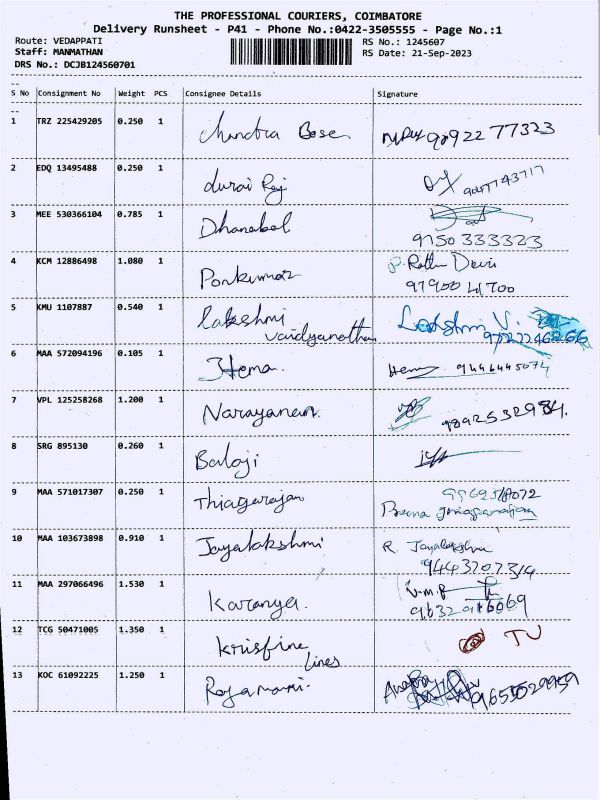 THE PROFESSIONAL COURIERS, COIMBATORE
Delivery Runsheet - P41 - Phone No.:0422-3505555 - Page No.:1
Route: VEDAPPATI RS No.: 1245607
Staff: MANMATHAN RS Date: 21-Sep-2023
DRS No.: DCJB124560701
S No Consignment No Weight PCS Consignee Details Signature
1 TRZ 225429205 0.250 1 Chandra Bose 98922 77323
2 EDQ 13495488 0.250 1 durai Raj
3 MEE 530366104 0.785 1 Dhanabal
9750333323
4 KCM 12886498 1.080 1 Ponkumar P. Rathna Devi
97900 41700
5 KMU 1107887 0.540 1 lakshmi Lakshmi V.
vaidyanathan
6 MAA 572094196 0.105 1 Hema Hema 9446445074
7 VPL 125258268 1.200 1 Narayanan 9892532984
8 SRG 895130 0.260 1 Balaji
9 MAA 571017307 0.250 1 Thiagarajan
10 MAA 103673898 0.910 1 Jayalakshmi R. Jayalakshmi
9443707314
11 MAA 297066496 1.530 1 Karanya. V.M.R
9632916069
12 TCG 50471005 1.350 1 krisfine TU
lines
13 KOC 61092225 1.250 1 Rajamani. 9655029959